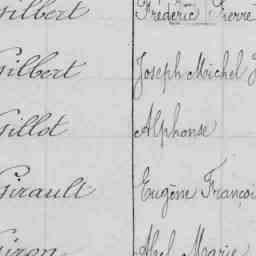 Gilbert Frédéric Pierre
Gilbert Joseph Michel
Gillot Alphonse
Girault Eugène Françoi
Giron Abel Marie